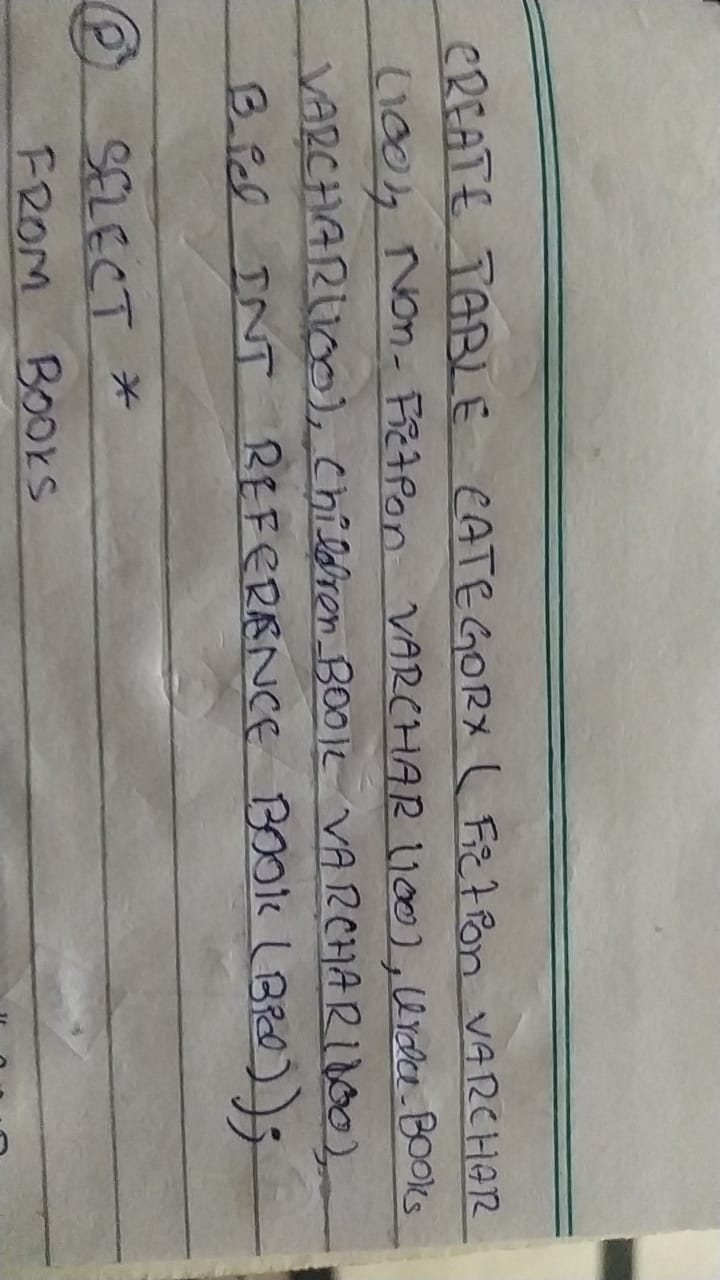 CREATE TABLE CATEGORY ( Fiction VARCHAR
(100), Non-Fiction VARCHAR (100), Urdu-Books
VARCHAR(100), Children_Book VARCHAR(100),
B-id INT REFERENCE BOOK (Bid));
(P) SELECT *
FROM BOOKS